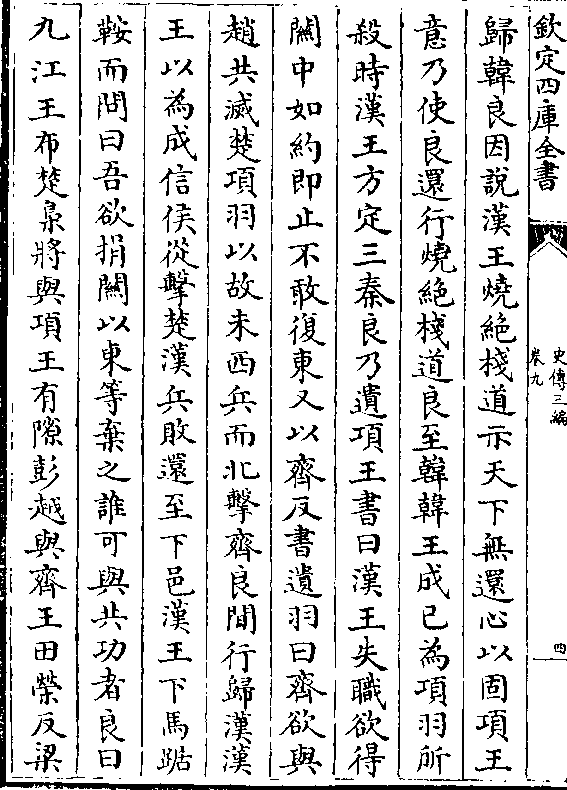 欽定四庫全書
史傳三編
卷九
四
歸韓良因說漢王燒絶棧道示天下無還心以固項王
意乃使良還行燒絶棧道良至韓韓王成已為項羽所
殺時漢王方定三秦良乃遺項王書曰漢王失職欲得
關中如約即止不敢復東又以齊反書遺羽曰齊欲與
趙共滅楚項羽以故未西兵而北擊齊良間行歸漢漢
王以為成信侯從擊楚漢兵敗還至下邑漢王下馬踞
鞍而問曰吾欲捐關以東等棄之誰可與共功者良曰
九江王布楚梟將與項王有隙彭越與齊王田榮反梁